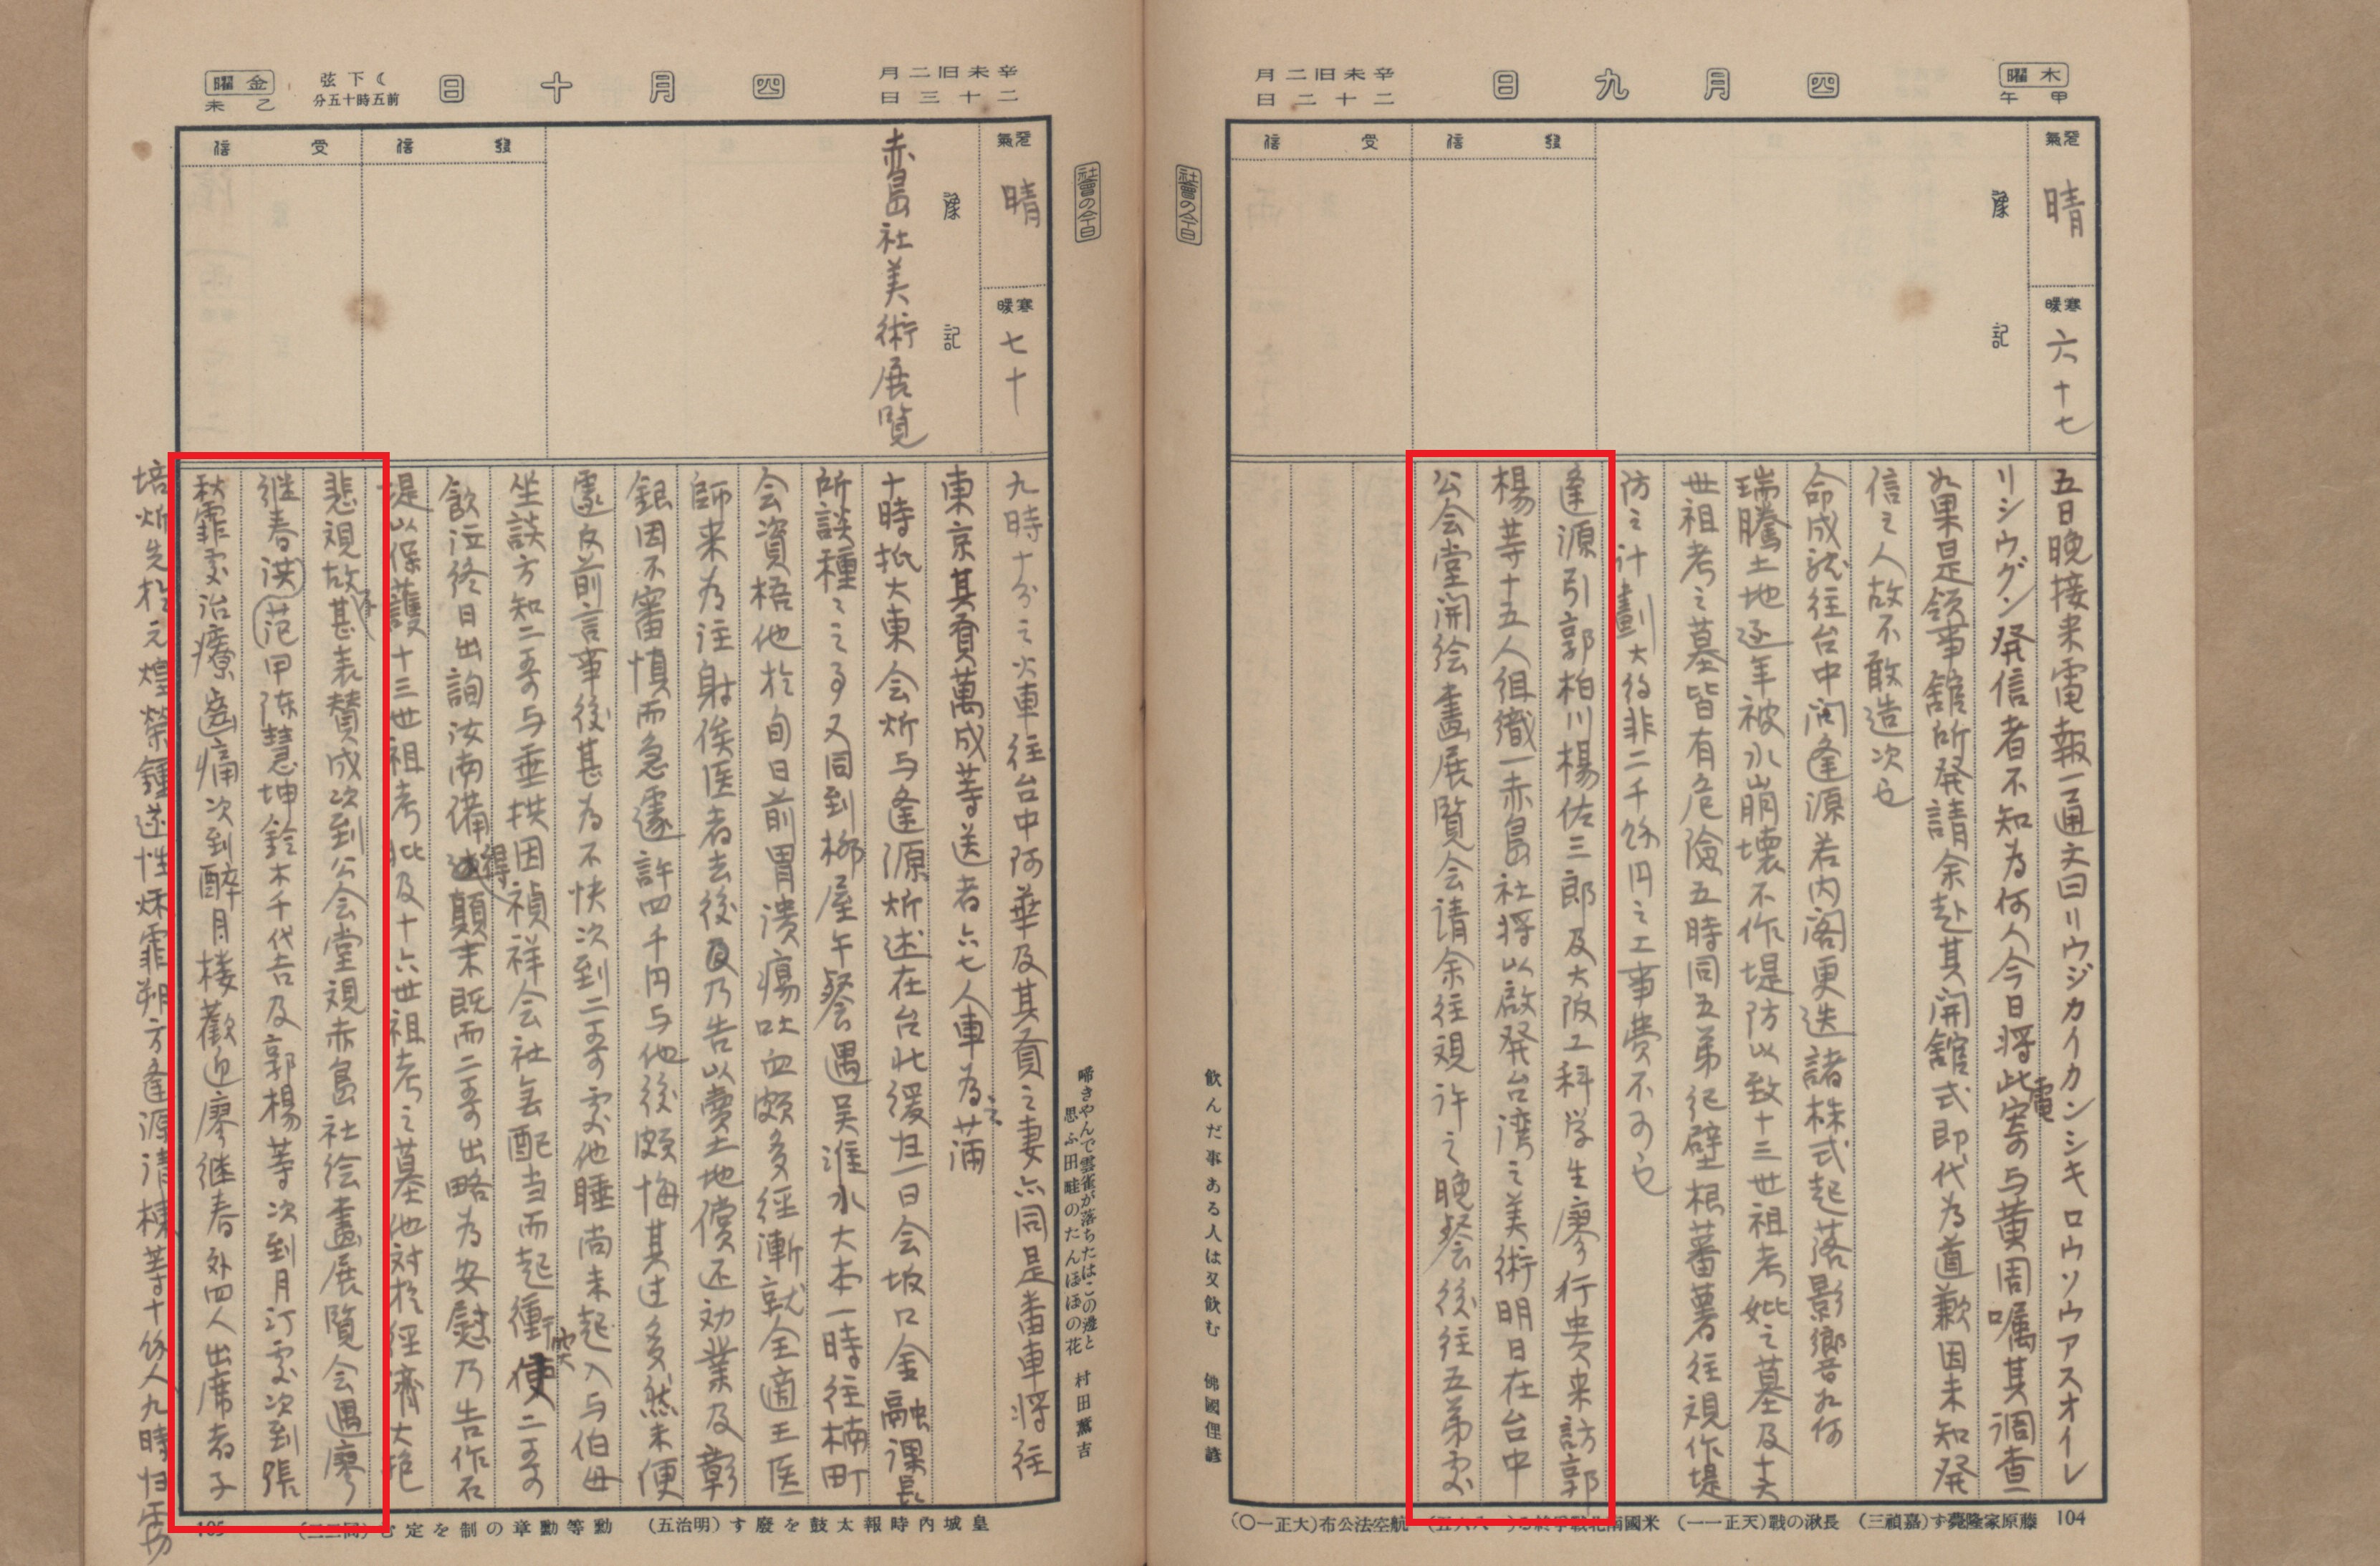 木曜
甲午
四月九日
辛未旧二月
二十二日
天氣
晴
寒暖
六十七
豫記
發信
受信
五日晚接来電報一通文曰リウジカイカンシキロウソウアスオイレ
リシウグン発信者不知為何人今日将此電寄与黄周嘱其調查
如果是領事館所発請余赴其開館式即代為道歉因未知発
信之人故不敢造次也
命成龍往台中問逢源若内閣更迭諸株式起落影嚮如何
瑞騰土地逐年被水崩壊不作堤防以致十三世祖考妣之墓及十六
世祖考之墓皆有危險五時同五弟
根蕃薯往視作堤
防之計劃大約非二千餘円之工事費不可也
逢源引郭柏川楊佐三郎及大阪工科学生廖行貴来訪郭
楊等十五人組織一赤島社将以啟発台湾之美術明日在台中
公会堂開绘畫展覧会请余往視许之晚餐後往五弟処
社會の今日
飲んだ事ある人は又飲む 佛國俚諺
104
藤原家隆薨す(嘉禎三)
長湫の戰(天正一一)
航空法公布(大正一〇)
金曜
乙未
☾下弦
前五時十五分
四月十日
辛未旧二月
二十三日
天氣
晴
寒暖
七十
豫記
赤島社美術展覧
發信
受信
九時十分之火車往台中阿華及其貢之妻亦同是番車将往
東京其貢萬成等送者六七人車為之滿
十時抵大東会炘与逢源炘述在台北緩归一日会坂口金融課長
所談種々之事又同到柳屋午餐遇吴淮水大本一時往楠町
会資梧他於旬日前胃潰瘍吐血頗多經漸就全適王医
師来為注射俟医者去後及乃告以賣土地償还効業及彰
銀因不審慎而急遽許四千円与他後頗悔其过多然未便
遽反前言事後甚為不快次到二哥処他睡尚未起入与伯母
坐談方知二哥与垂拱因禎祥会社無配当而起衝突二哥
飲泣終日出詢汝南備得顛末既而二哥出略為安慰乃告作石
堤以保護十三世祖考妣及十六世祖考之墓他対於經濟大抱
悲視故甚表赞成次到公会堂視赤島社绘畫展覧会遇廖
继春洪范甲陈慧坤鈴木千代吉及郭楊等次到月汀処次到張
秋霏処治療齒痛次到醉月楼歡迎廖继春外四人出席者子
培炘先於元煌榮鐘逑性秋霏朔方逢源清棟等十餘人九時归霧
社會の今日
啼きやんで雲雀が落ちたはこの邊と
思ふ田畦のたんほほの花 村田薰吉
105
皇城內時報太鼓を廢す(明治五)
勳等勳章の制を定む